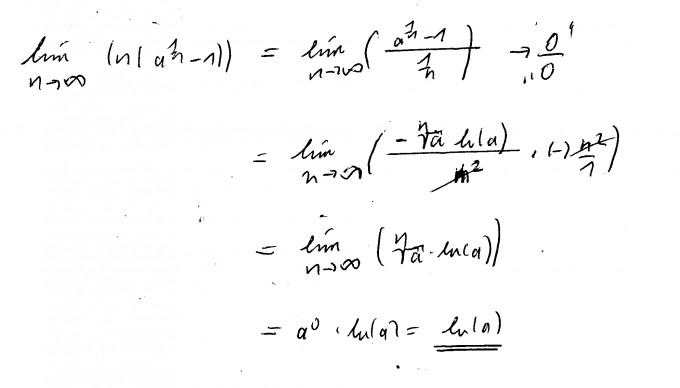 lim n→∞ (n(a^{1/n} − 1)) = lim n→∞ ( (a^{1/n} − 1) / (1/n) ) → „0/0“
= lim n→∞ ( (−ⁿ√a ln(a)) / n² · (−) n²/1 )
= lim n→∞ (ⁿ√a · ln(a))
= a⁰ · ln(a) = ln(a)